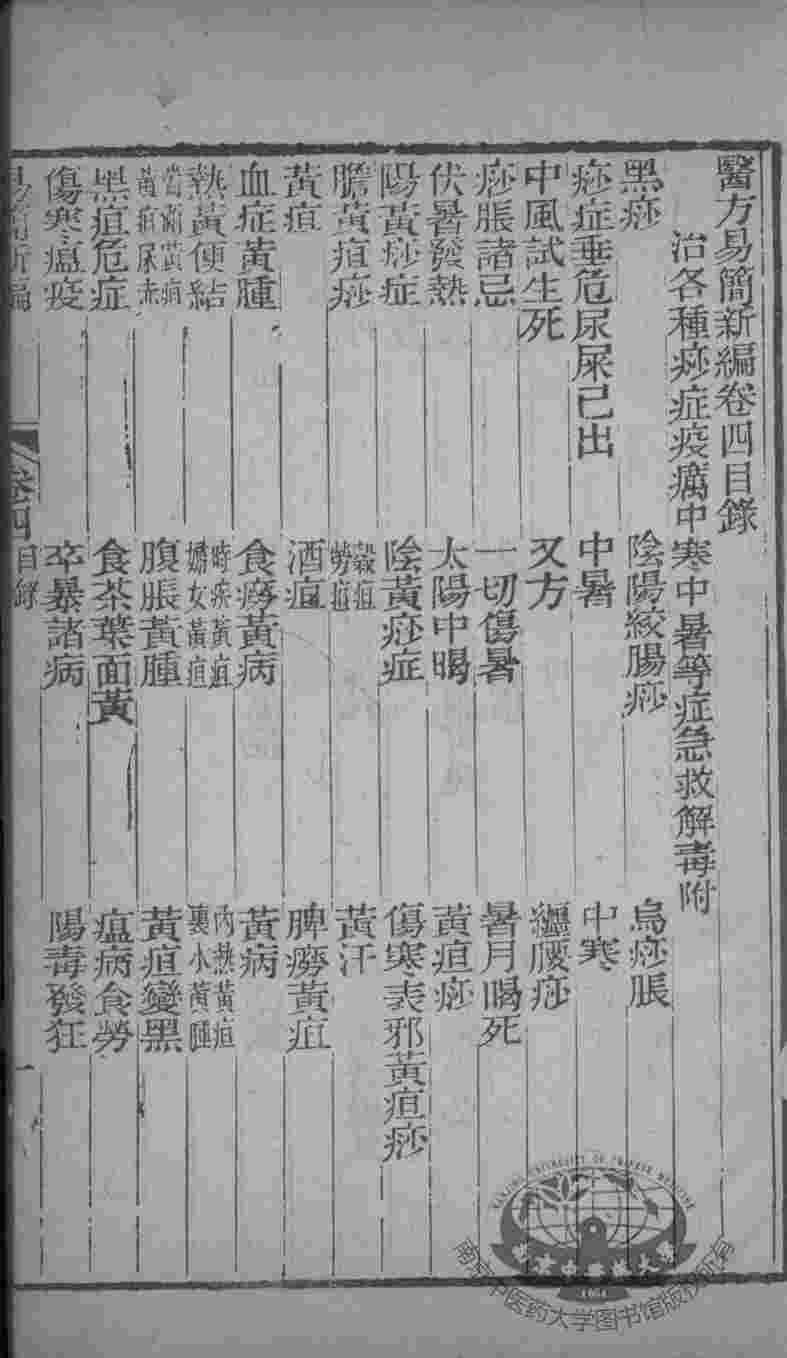 醫方易簡新編卷四目錄
治各種痧症疫癘中寒中暑等症急救解毒附
黑痧　陰陽絞腸痧　烏痧脹
痧症垂危尿屎已出　中暑　中寒
中風試生死　又方　纏腰痧
痧脹諸忌　一切傷暑　暑月暍死
伏暑發熱　太陽中暍　黃疸痧
陽黃痧症　陰黃痧症　傷寒表邪黃疸痧
膽黃疸痧　穀疸　勞疸　黃汗
黃疸　酒疸　脾癆黃疸
血症黃腫　食癆黃病　黃病
熱黃便結　時疾黃疸　婦女黃疸　內熱黃疸　裏水黃腫
黃疸尿赤　腹脹黃腫　黃疸變黑
黑疸危症　食茶葉面黃　瘟病食勞
傷寒瘟疫　卒暴諸病　陽毒發狂
易簡新編　卷四目錄　一
NANJING UNIVERSITY OF CHINESE MEDICINE
南京中医药大学
1954
南京中医药大学图书馆版权所有